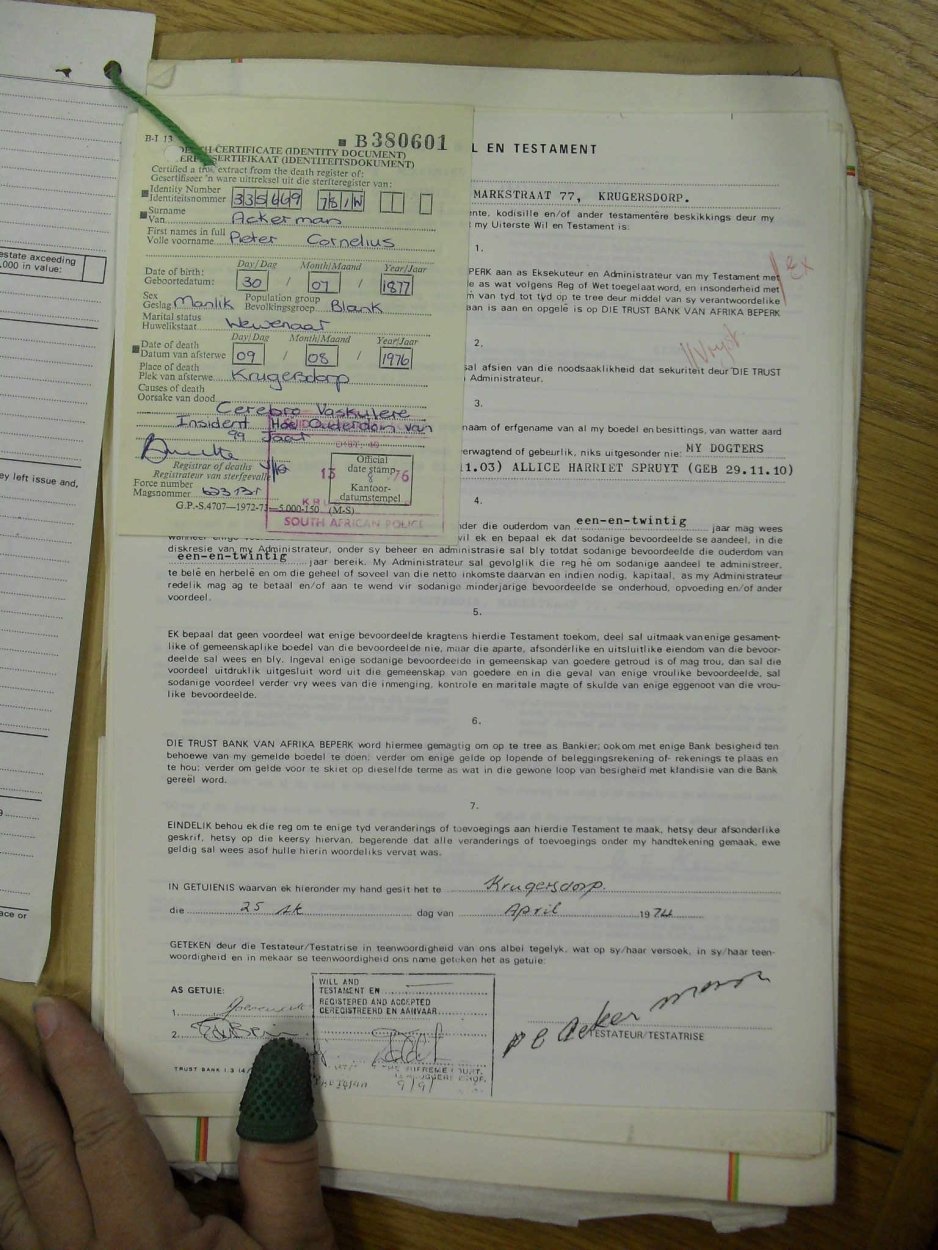 estate axceeding
.000 in value:
ey left issue and,
ace or
B-I 13
B380601
DEATH CERTIFICATE (IDENTITY DOCUMENT)
STERFTESERTIFIKAAT (IDENTITEITSDOKUMENT)
Certified a true extract from the death register of:
Gesertifiseer 'n ware uittreksel uit die sterfteregister van:
Identity Number
Identiteitsnommer 335649 781W
Surname
Van. Ackerman
First names in full
Volle voorname Pieter Cornelius
Date of birth: Day/Dag Month/Maand Year/Jaar
Geboortedatum: 30 / 07 / 1877
Sex Population group
Geslag Manlik Bevolkingsgroep Blank
Marital status
Huwelikstaat Wewenaar
Date of death Day/Dag Month/Maand Year/Jaar
Datum van afsterwe 09 / 08 / 1976
Place of death
Plek van afsterwe Krugersdorp
Causes of death
Oorsake van dood
Cerebro Vaskulere
Insident Hoë Ouderdom van
99 Jaar
Registrar of deaths
Registrateur van sterfgevalle
Force number
Magsnommer
Official
date stamp
Kantoor-
datumstempel
13 8 76
G.P.-S.4707—1972-73—5,000-150 (M-S)
SOUTH AFRICAN POLICE
L EN TESTAMENT
MARKSTRAAT 77, KRUGERSDORP.
ente, kodisille en/of ander testamentêre beskikkings deur my
t my Uiterste Wil en Testament is:
1.
PERK aan as Eksekuteur en Administrateur van my Testament met
e as wat volgens Reg of Wet toegelaat word, en insonderheid met
m van tyd tot tyd op te tree deur middel van sy verantwoordelike
aan is aan en opgelê is op DIE TRUST BANK VAN AFRIKA BEPERK
2.
sal afsien van die noodsaaklikheid dat sekuriteit deur DIE TRUST
Administrateur.
3.
naam of erfgename van al my boedel en besittings, van watter aard
verwagtend of gebeurlik, niks uitgesonder nie: MY DOGTERS
1.03) ALLICE HARRIET SPRUYT (GEB 29.11.10)
4.
nder die ouderdom van een-en-twintig jaar mag wees
wil ek en bepaal ek dat sodanige bevoordeelde se aandeel, in die
diskresie van my Administrateur, onder sy beheer en administrasie sal bly totdat sodanige bevoordeelde die ouderdom van
een-en-twintig jaar bereik. My Administrateur sal gevolglik die reg hê om sodanige aandeel te administreer,
te belê en herbelê en om die geheel of soveel van die netto inkomste daarvan en indien nodig, kapitaal, as my Administrateur
redelik mag ag te betaal en/of aan te wend vir sodanige minderjarige bevoordeelde se onderhoud, opvoeding en/of ander
voordeel.
5.
EK bepaal dat geen voordeel wat enige bevoordeelde kragtens hierdie Testament toekom, deel sal uitmaak van enige gesament-
like of gemeenskaplike boedel van die bevoordeelde nie, maar die aparte, afsonderlike en uitsluitlike eiendom van die bevoor-
deelde sal wees en bly. Ingeval enige sodanige bevoordeelde in gemeenskap van goedere getroud is of mag trou, dan sal die
voordeel uitdruklik uitgesluit word uit die gemeenskap van goedere en in die geval van enige vroulike bevoordeelde, sal
sodanige voordeel verder vry wees van die inmenging, kontrole en maritale magte of skulde van enige eggenoot van die vrou-
like bevoordeelde.
6.
DIE TRUST BANK VAN AFRIKA BEPERK word hiermee gemagtig om op te tree as Bankier; ook om met enige Bank besigheid ten
behoewe van my gemelde boedel te doen; verder om enige gelde op lopende of beleggingsrekening of- rekenings te plaas en
te hou; verder om gelde voor te skiet op dieselfde terme as wat in die gewone loop van besigheid met klandisie van die Bank
gereël word.
7.
EINDELIK behou ek die reg om te enige tyd veranderings of toevoegings aan hierdie Testament te maak, hetsy deur afsonderlike
geskrif, hetsy op die keersy hiervan, begerende dat alle veranderings of toevoegings onder my handtekening gemaak, ewe
geldig sal wees asof hulle hierin woordeliks vervat was.
IN GETUIENIS waarvan ek hieronder my hand gesit het te Krugersdorp.
die 25 ste dag van April 1974
GETEKEN deur die Testateur/Testatrise in teenwoordigheid van ons albei tegelyk, wat op sy/haar versoek, in sy/haar teen-
woordigheid en in mekaar se teenwoordigheid ons name geteken het as getuie:
AS GETUIE:
1.
2.
WILL AND
TESTAMENT EN
REGISTERED AND ACCEPTED
GEREGISTREER EN AANVAAR
THE SUPREME COURT.
P C Ackermann
TESTATEUR/TESTATRISE
TRUST BANK 1.3 14/